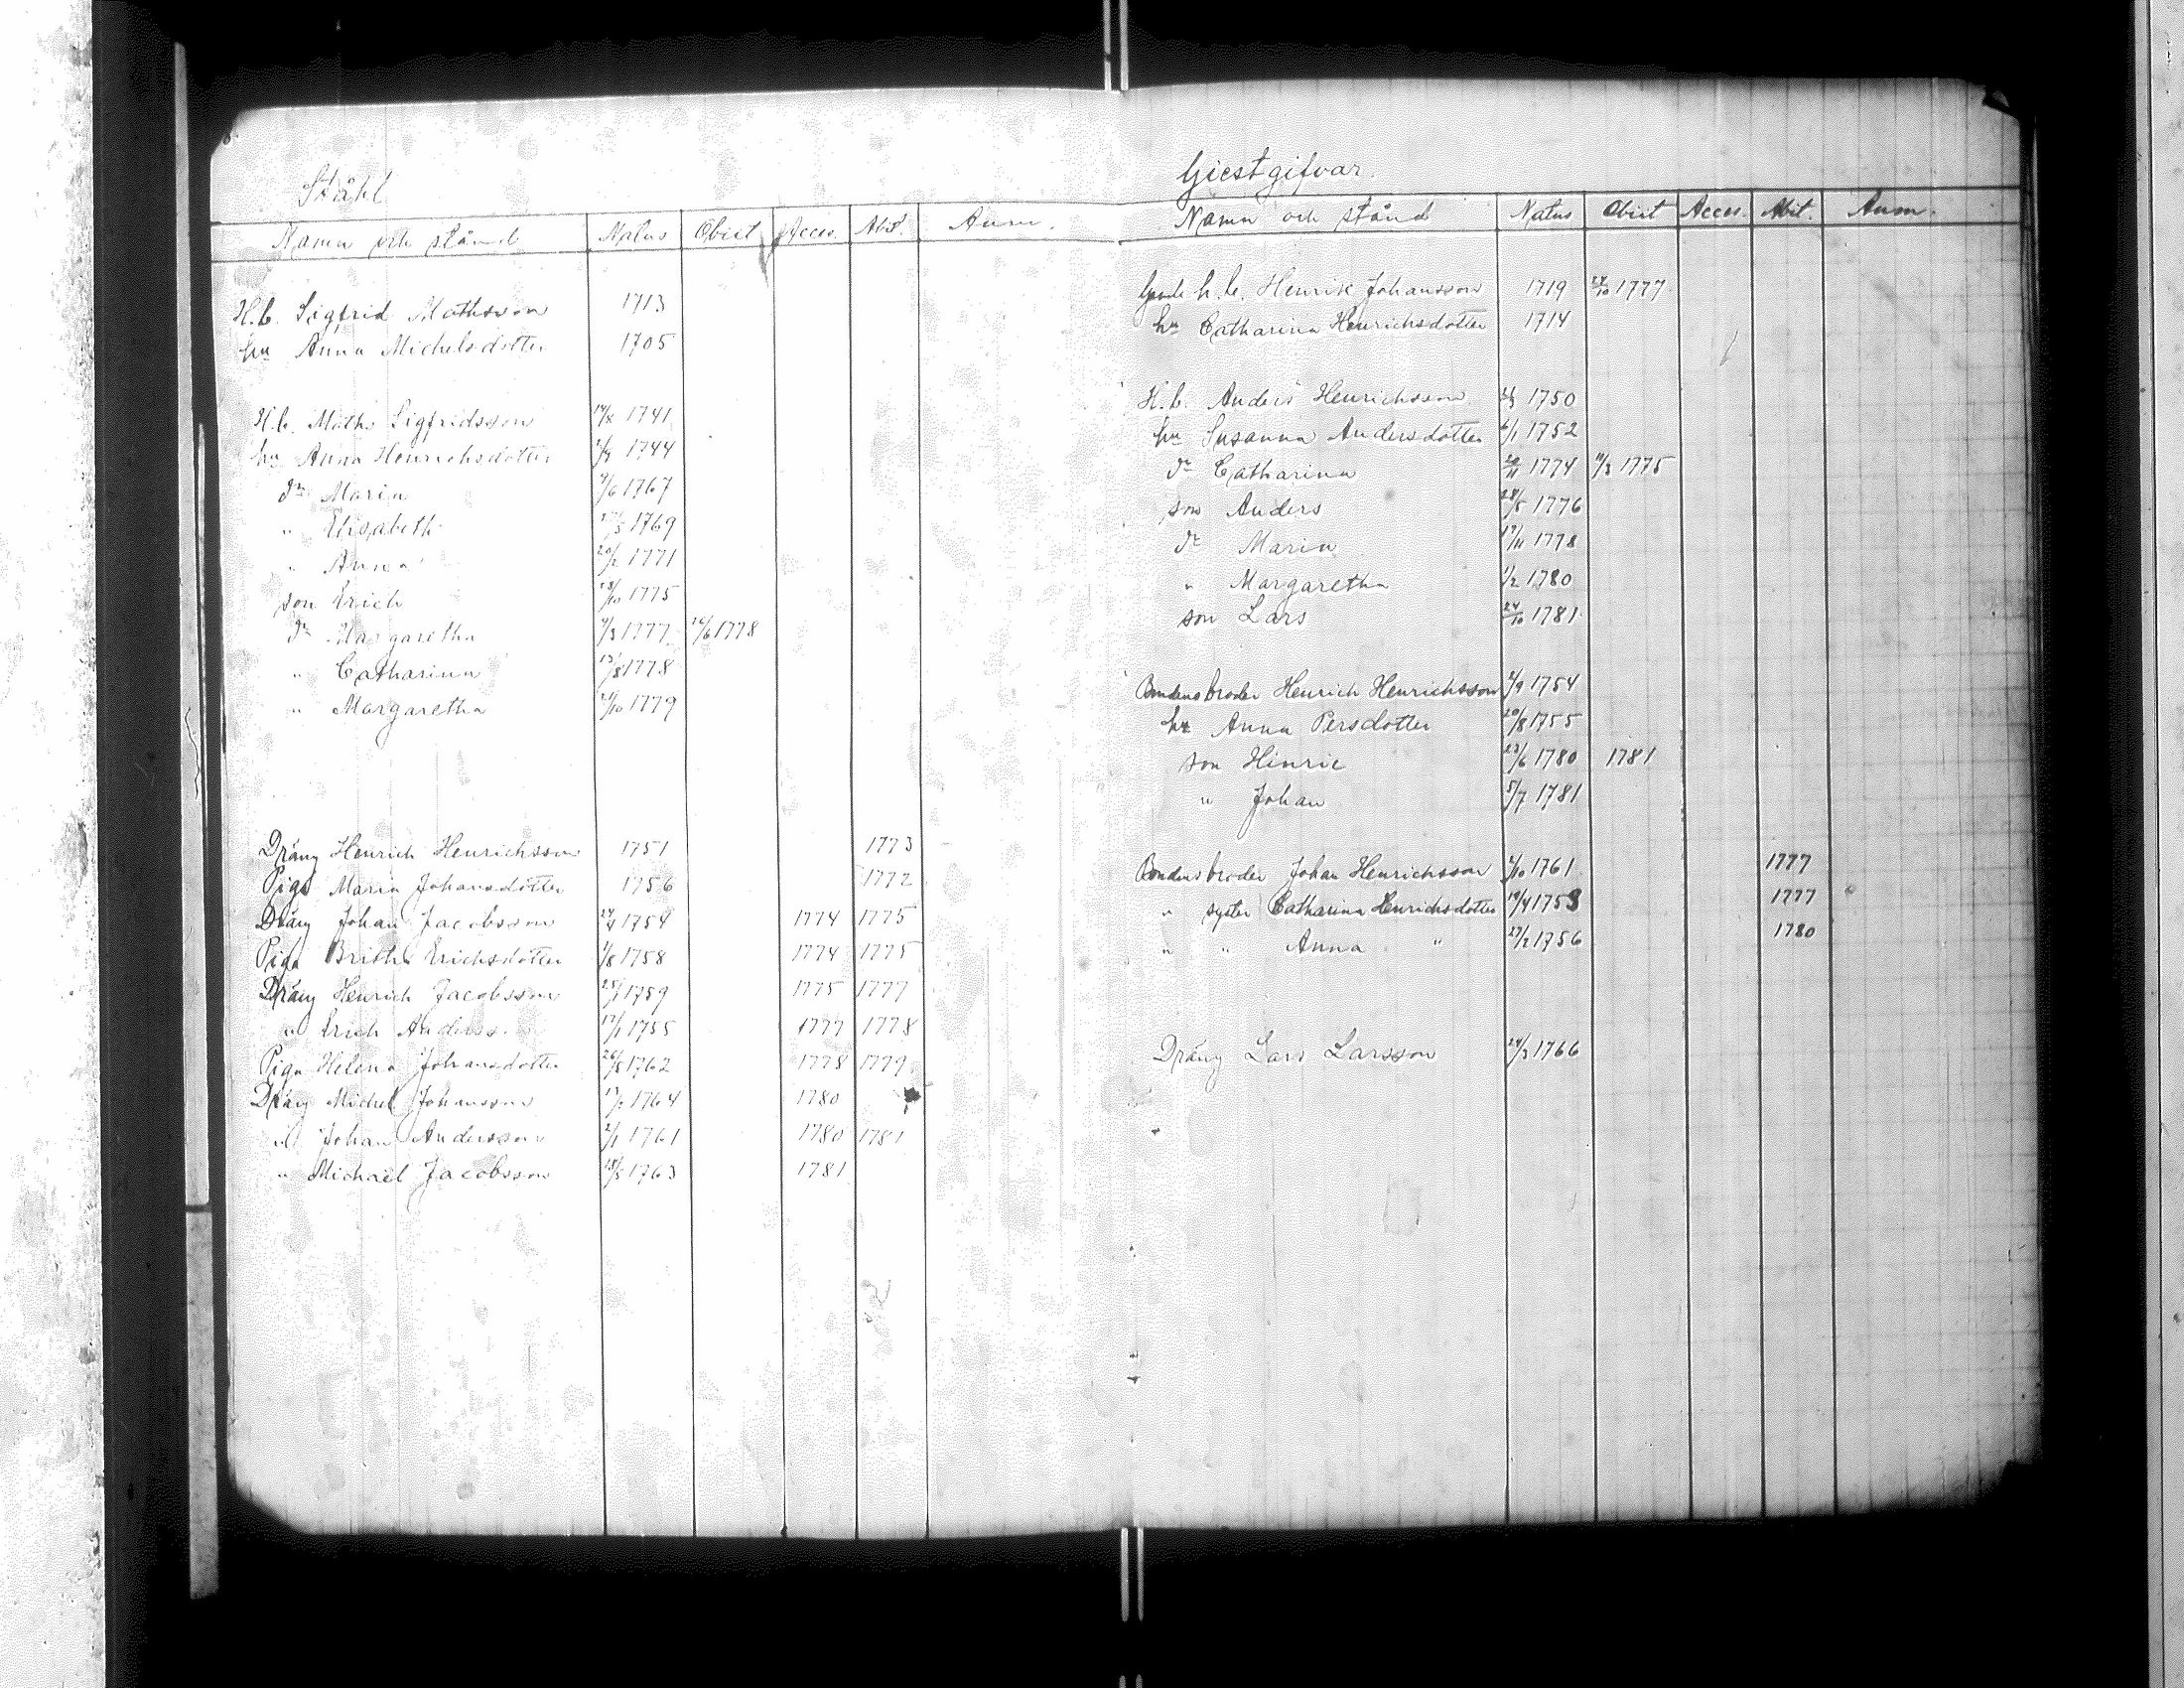 Ståhl
Namn och stånd Natus Obiit Acces. Abit. Anm.
H.b. Sigfrid Mathsson 1713
hu Anna Michelsdotter 1705
H.b. Maths Sigfridsson 14/8 1741
hu Anna Henrichsdotter 1744
dr Maria 1767
" Elisabeth 1769
" Anna 20/2 1771
son Erich 28/10 1775
dr Margaretha 1777 1778
" Catharina 13/8 1778
" Margaretha 21/10 1779
Dräng Henrich Henrichsson 1751 1773
Piga Maria Johansdotter 1756 1772
Dräng Johan Jacobsson 1754 1774 1775
Piga Britha Erichsdotter 1/8 1758 1774 1775
Dräng Henrich Jacobsson 1759 1775 1777
" Erich Anderss. 17/1 1755 1777 1778
Piga Helena Johansdotter 26/8 1762 1778 1779
Dräng Michel Johansson 1764 1780
" Johan Andersson 2/1 1761 1780 1781
" Michael Jacobsson 1763 1781
Giestgifvar.
Namn och stånd Natus Obiit Acces. Abit. Anm.
Gamle h.b. Henrik Johansson 1719 24/10 1777
hu Catharina Henrichsdotter 1714
H.b. Anders Henrichsson 1750
hu Susanna Andersdotter 6/1 1752
dr Catharina 20/11 1774 11/3 1775
son Anders 28/5 1776
dr Maria 17/11 1778
" Margaretha 1/2 1780
son Lars 24/10 1781
Bondens broder Henrich Henrichsson 2/9 1754
hu Anna Persdotter 20/8 1755
son Hinric 23/6 1780 1781
" Johan 5/7 1781
Bondens broder Johan Henrichsson 1761 1777
" syster Catharina Henrichsdotter 1758 1777
" " Anna " 27/2 1756 1780
Dräng Lars Larsson 24/3 1766